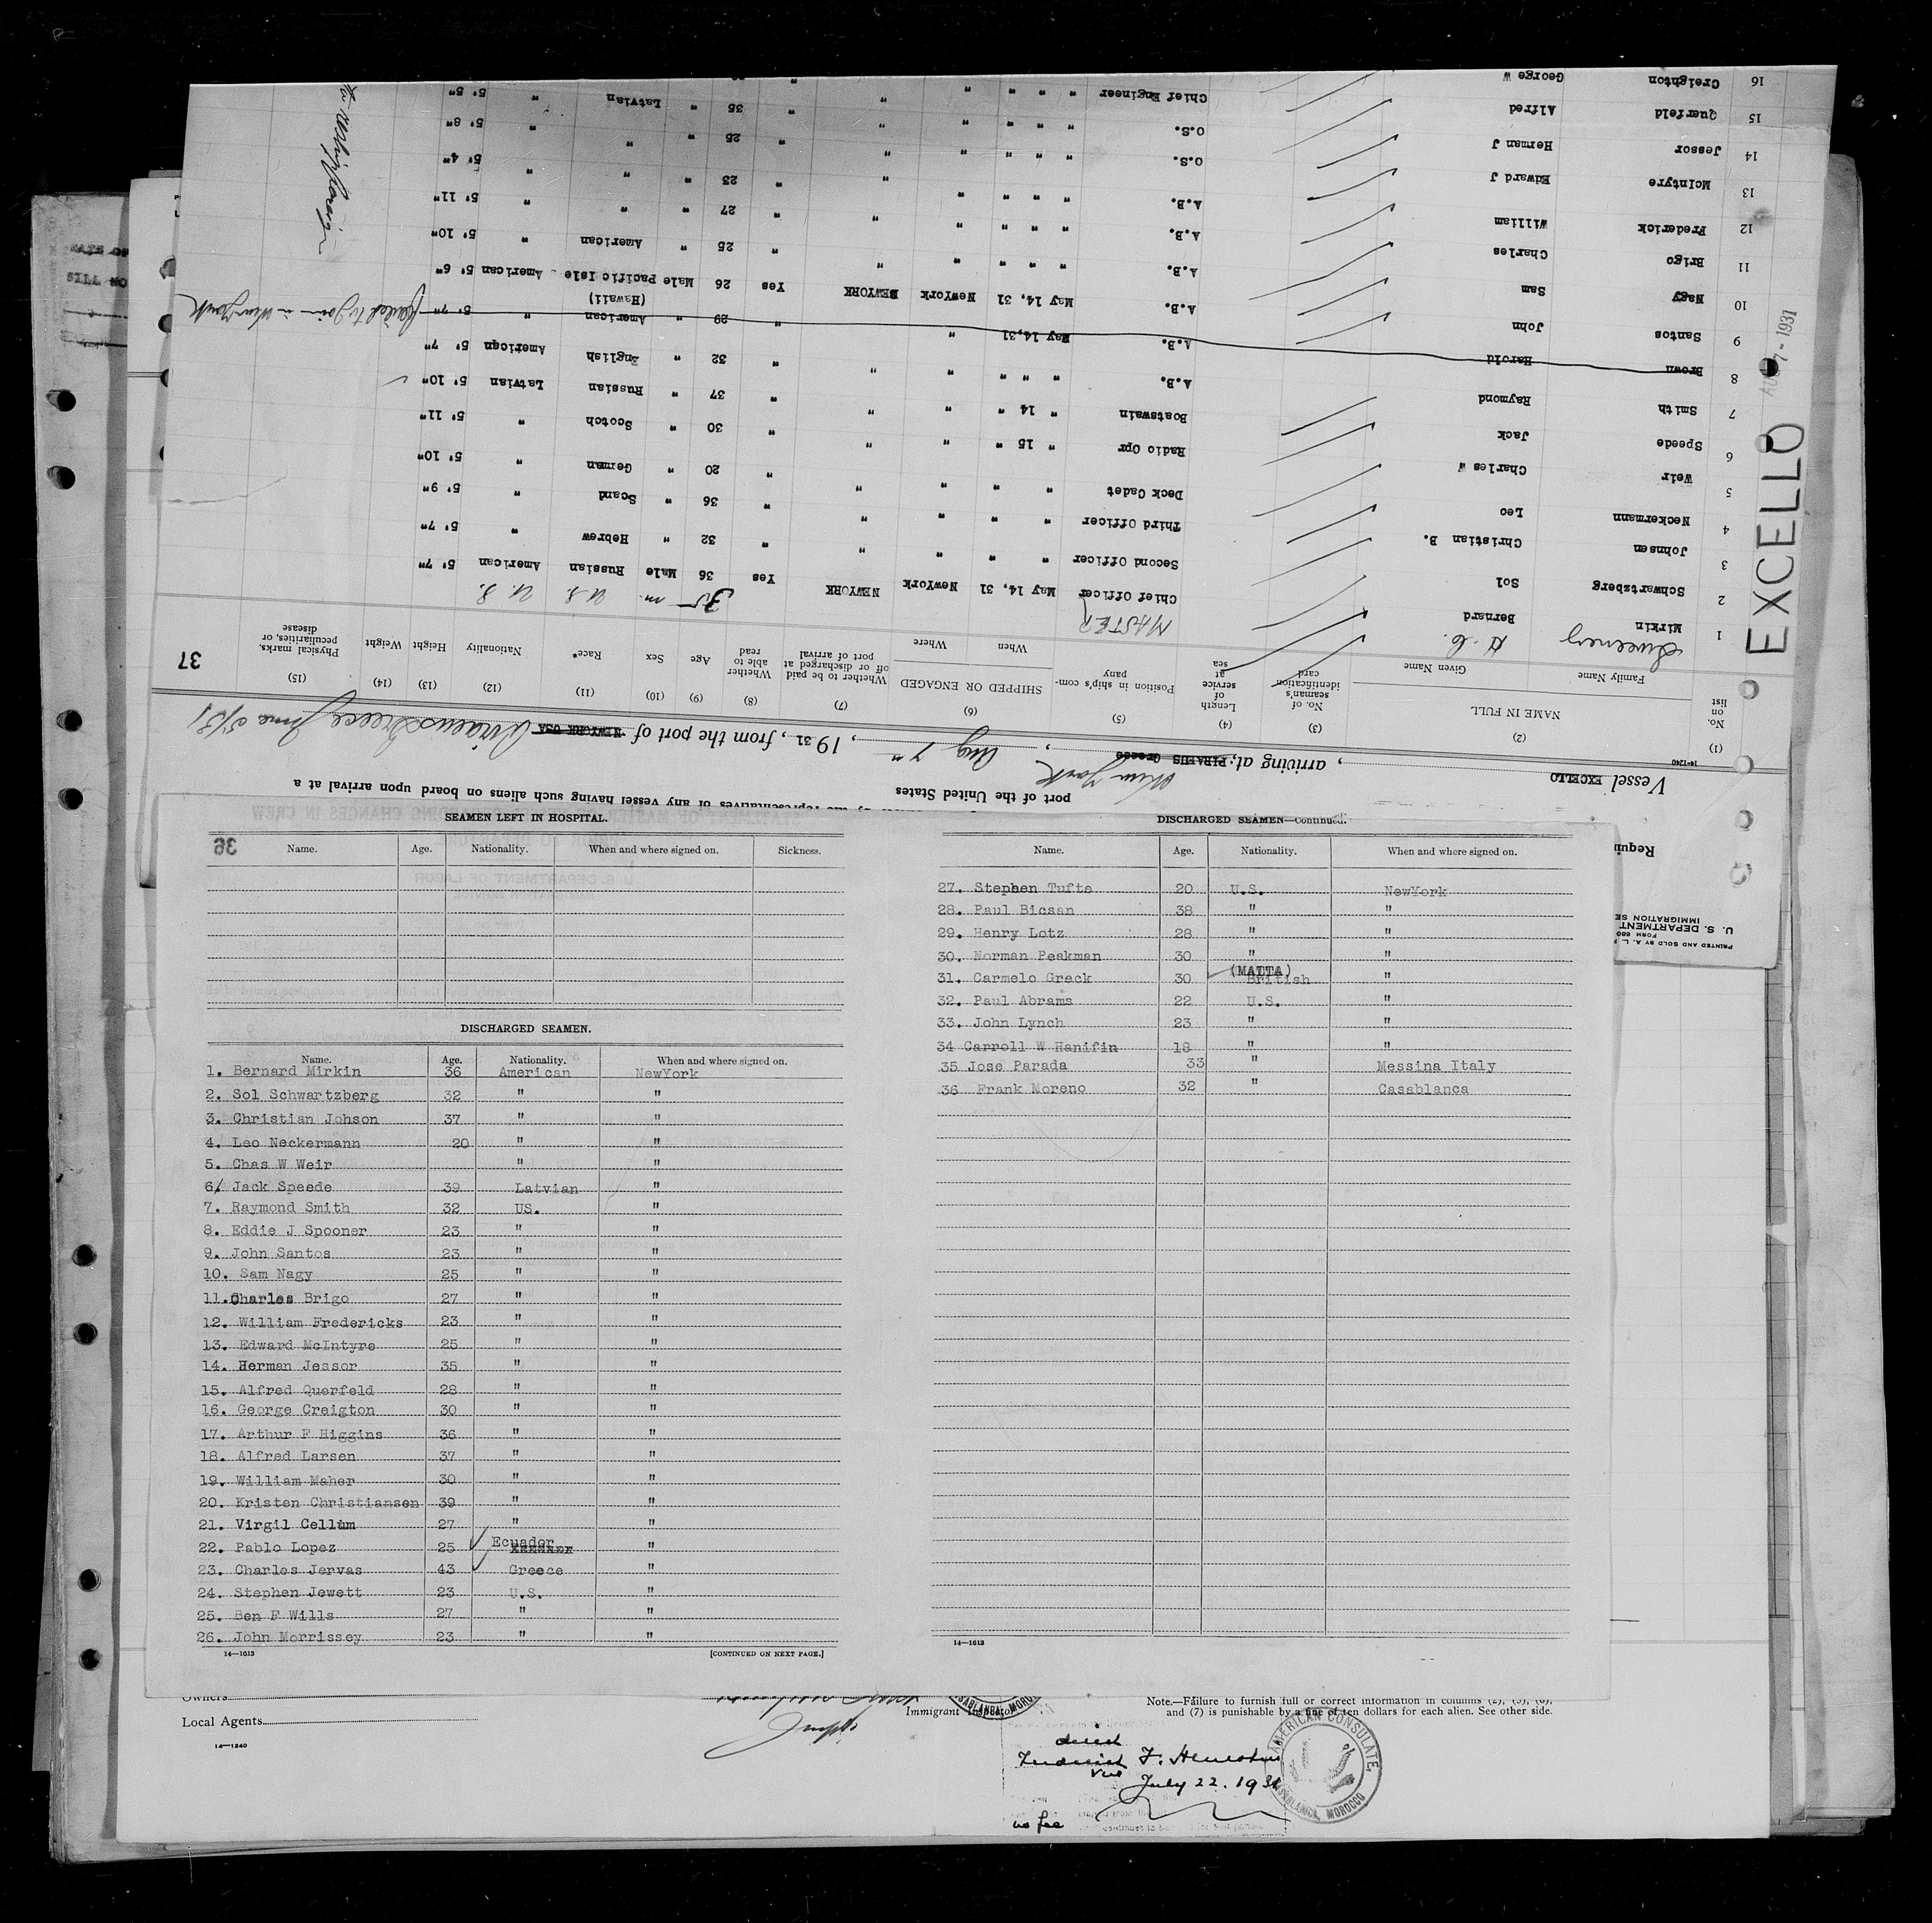 SEAMEN LEFT IN HOSPITAL.
36
Name. Age. Nationality. When and where signed on. Sickness.
DISCHARGED SEAMEN.
Name. Age. Nationality. When and where signed on.
1. Bernard Mirkin 36 American NewYork
2. Sol Schwartzberg 32 " "
3. Christian Johson 37 " "
4. Leo Neckermann 20 " "
5. Chas W Weir " "
6/ Jack Speede 39 Latvian "
7. Raymond Smith 32 US. "
8. Eddie J Spooner 23 " "
9. John Santos 23 " "
10. Sam Nagy 25 " "
11. Charles Brigo 27 " "
12. William Fredericks 23 " "
13. Edward McIntyre 25 " "
14. Herman Jessor 35 " "
15. Alfred Querfeld 28 " "
16. George Creigton 30 " "
17. Arthur F Higgins 36 " "
18. Alfred Larsen 37 " "
19. William Maher 30 " "
20. Kristen Christiansen 39 " "
21. Virgil Cellum 27 " "
22. Pablo Lopez 25 Ecuador "
23. Charles Jervas 43 Greece "
24. Stephen Jewett 23 U.S. "
25. Ben F Wills 27 " "
26. John Morrissey 23 " "
14—1613 [CONTINUED ON NEXT PAGE.]
DISCHARGED SEAMEN—Continued.
Name. Age. Nationality. When and where signed on.
27. Stephen Tufte 20 U.S. NewYork
28. Paul Bicsan 38 " "
29. Henry Lotz 28 " "
30. Norman Peakman 30 " "
31. Carmelo Greck 30 (MALTA) British "
32. Paul Abrams 22 U.S. "
33. John Lynch 23 " "
34 Carroll W Hanifin 18 " "
35 Jose Parada 33 " Messina Italy
36 Frank Moreno 32 " Casablanca
14—1613
Owners
Local Agents
14—1240
Immigrant Inspector
Note.—Failure to furnish full or correct information in columns (2), (5), (6),
and (7) is punishable by a fine of ten dollars for each alien. See other side.
July 22. 1931
no fee
AMERICAN CONSULATE, CASABLANCA, MOROCCO
U. S. DEPARTMENT
IMMIGRATION SE
FORM 680
PRINTED AND SOLD BY A. L.
Requi
port of the United States
representatives of any vessel having such aliens on board upon arrival at a
Vessel EXCELLO, arriving at PIRAEUS Greece New York, Aug 7, 1931, from the port of NEWYORK USA Piraeus Greece June 5/31
14-1240
37
(1) (2) (3) (4) (5) (6) (7) (8) (9) (10) (11) (12) (13) (14) (15)
No. on list NAME IN FULL Family Name Given Name No. of seaman's identification card Length of service at sea Position in ship's company SHIPPED OR ENGAGED When Where Whether to be paid off or discharged at port of arrival Whether able to read Age Sex Race* Nationality Height Weight Physical marks, peculiarities, or disease
Sweeney MASTER 35 m. U.S. U.S.
1 Mirkin Bernard Chief Officer May 14, 31 NewYork NEWYORK Yes 36 Male Russian American 5' 7"
2 Schwartzberg Sol Second Officer " " " " " 32 " Hebrew " 5' 7"
3 Johnsen Christian B. Third Officer " " " " " 36 " Scand " 5' 9"
4 Neckermann Leo Deck Cadet " " " " " 20 " German " 5' 10"
5 Weir Charles W Radio Opr " 15 " " " " 30 " Scotch " 5' 11"
6 Speede Jack Boatswain " 14 " " " " 37 " Russian Latvian 5' 10"
7 Smith Raymond A.B. " " " " " " 32 " English American 5' 7"
8 Brown Harold A.B. May 14, 31 " " 29 " American " 5' 7" Failed to Join in New York
9 Santos John A.B. May 14, 31 NewYork NEWYORK Yes 26 Male Pacific Isle (Hawaii) American 5' 6"
10 Nagy Sam A.B. " " " " " " 25 " American " 5' 10"
11 Brigo Charles A.B. " " " " " " 27 " " " 5' 11"
12 Frederick William A.B. " " " " " " 23 " " " 5' 4"
13 McIntyre Edward J O.S. " " " " " " 25 " " " 5' 8"
14 Jessor Herman J O.S. " " " " " " 35 " Latvian " 5' 5"
15 Querfeld Alfred Chief Engineer " " " " "
16 Creighton George W
EXCELLO
AUG 7 - 1931